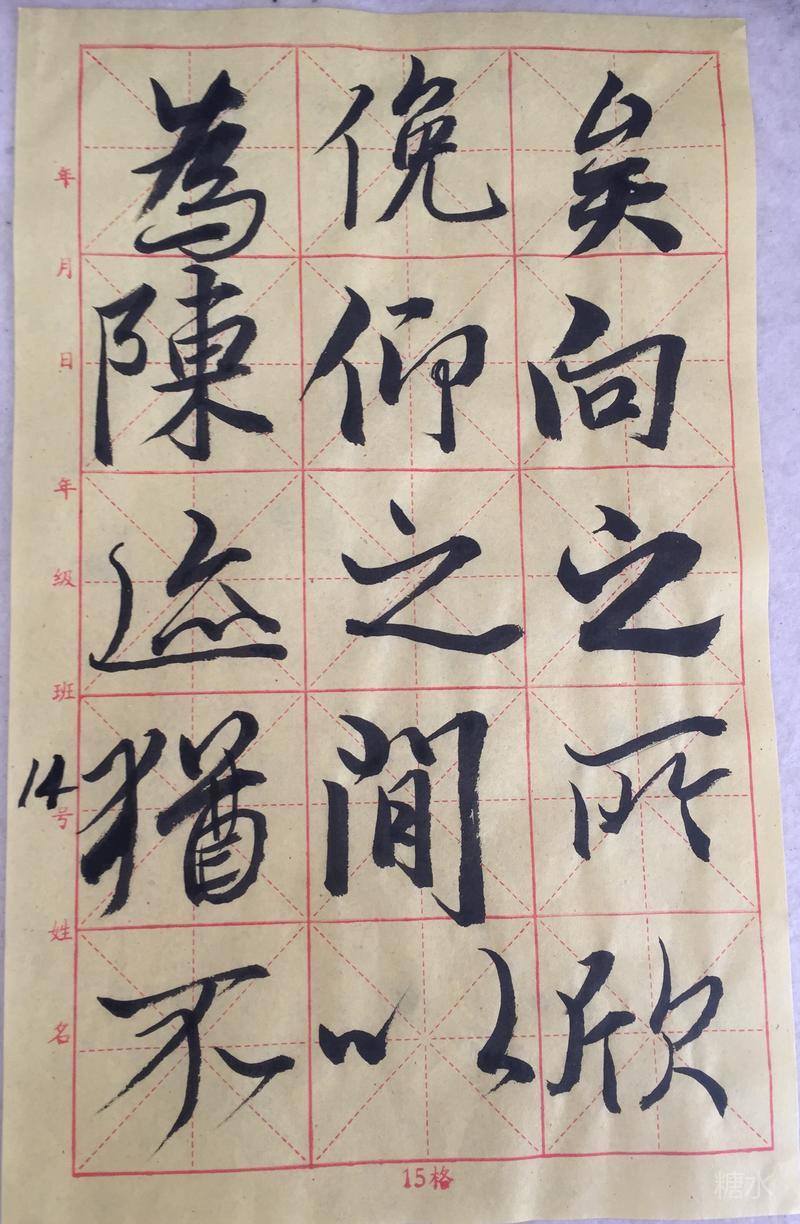 矣向之所欣
俛仰之閒以
為陳迹猶不
年月日年级班14号姓名
15格
糖水